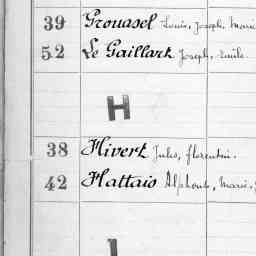 39 Grouasel Louis, Joseph, Marie
52 Le Gaillart Joseph, Émile
H
38 Hivert Jules, florentin.
42 Hattais Alphonse, Marie,
I